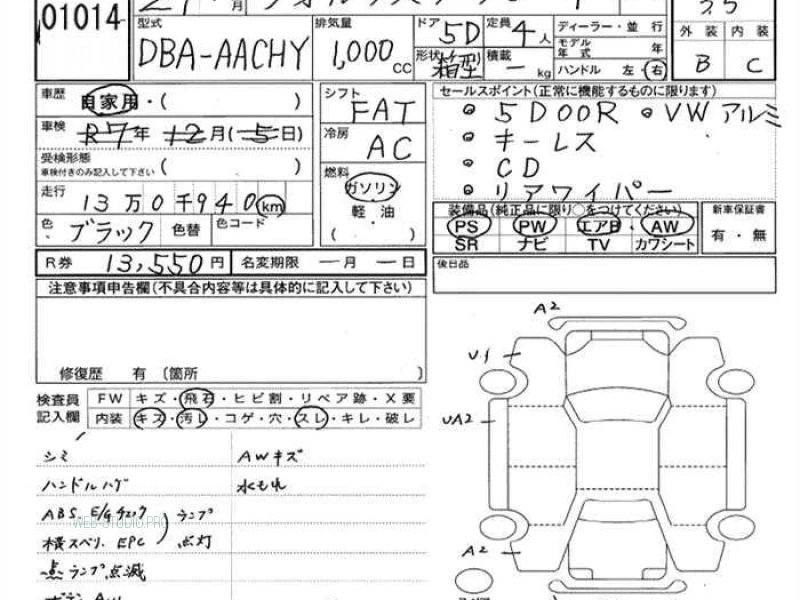 01014
月
型式 DBA-AACHY
排気量 1,000 CC
ドア 5D
定員 4人
形状 箱型
積載 ー kg
ディーラー・並行
モデル年式 年
ハンドル 左・右
外装 B
内装 C
車歴 自家用・( )
車検 R7年 12月(5日)
受検形態 ( )
車検付きのみ記入して下さい
走行 13万0千940km
色 ブラック 色替 色コード
シフト FAT
冷房 AC
燃料 ガソリン
軽・油
( )
セールスポイント(正常に機能するものに限ります)
・5DOOR ・VWアルミ
・キーレス
・CD
・リアワイパー
装備品(純正品に限り○をつけてください)
PS PW エアB AW
SR ナビ TV カワシート
新車保証書
有・無
R券 13,550円 名変期限 ー月 ー日
後日品
注意事項申告欄(不具合内容等は具体的に記入して下さい)
修復歴 有 (箇所 )
検査員記入欄
FW キズ・飛石・ヒビ割・リペア跡・X要
内装 キズ・汚レ・コゲ・穴・スレ・キレ・破レ
シミ AWキズ
ハンドルハゲ 水もれ
ABS E/Gチェック ランプ
横スベリ. EPC 点灯
点ランプ点滅
WEB-STUDIO.PRO
A2
U1
UA2
A2